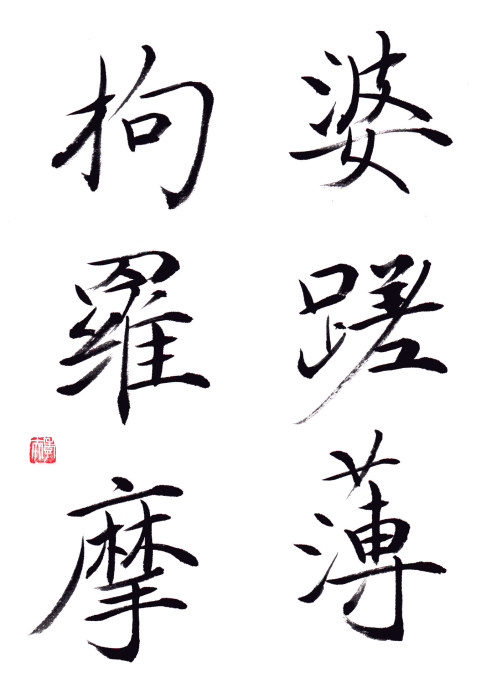 婆蹉薄
拘羅摩